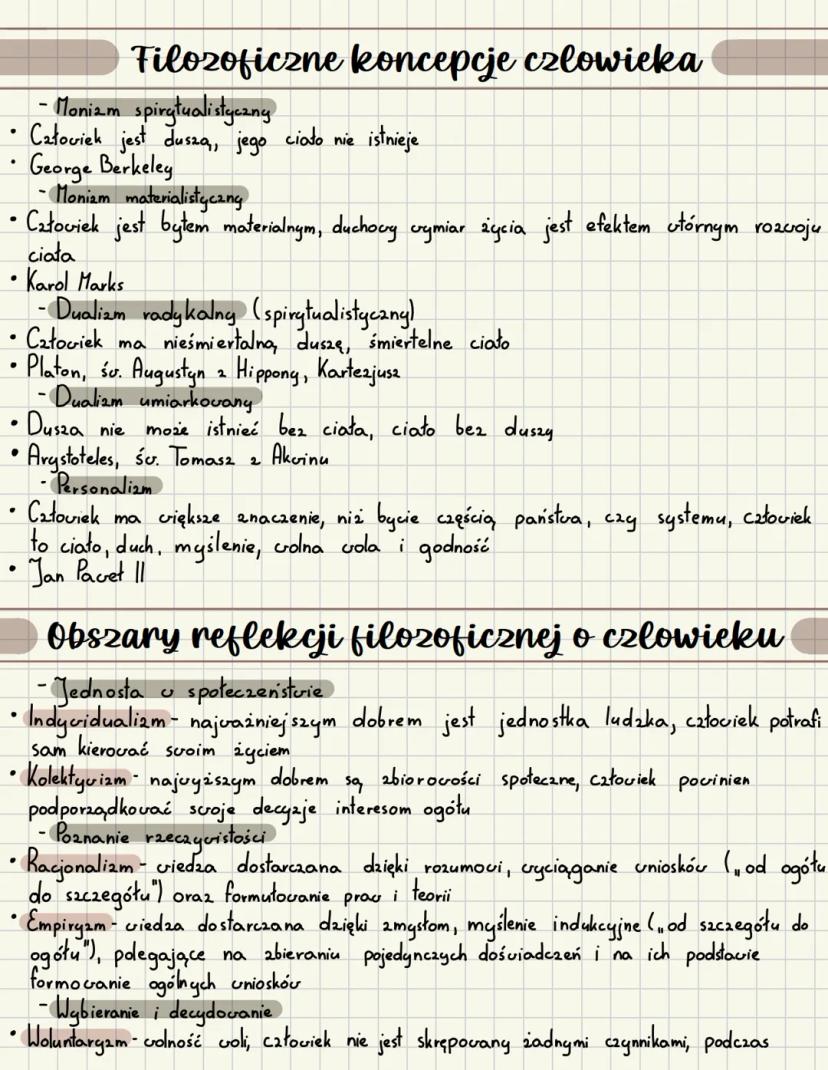 Filozoficzne koncepcje człowieka
- Monizm spirytualistyczny
• Człowiek jest duszą, jego ciało nie istnieje
• George Berkeley
- Monizm materialistyczny
• Człowiek jest bytem materialnym, duchowy wymiar życia jest efektem wtórnym rozwoju
ciała
• Karol Marks
- Dualizm radykalny (spirytualistyczny)
• Człowiek ma nieśmiertalną duszę, śmiertelne ciało
• Platon, św. Augustyn z Hippony, Kartezjusz
- Dualizm umiarkowany
• Dusza nie może istnieć bez ciała, ciało bez duszy
• Arystoteles, św. Tomasz z Akwinu
- Personalizm
• Człowiek ma większe znaczenie, niż bycie częścią państwa, czy systemu, człowiek
to ciało, duch, myślenie, wolna wola i godność
• Jan Paweł II
Obszary refleksji filozoficznej o człowieku
- Jednosta w społeczeństwie
• Indywidualizm - najważniejszym dobrem jest jednostka ludzka, człowiek potrafi
sam kierować swoim życiem
• Kolektywizm - najwyższym dobrem są zbiorowości społeczne, człowiek powinien
podporządkować swoje decyzje interesom ogółu
- Poznanie rzeczywistości
• Racjonalizm - wiedza dostarczana dzięki rozumowi, wyciąganie wniosków („od ogółu
do szczegółu") oraz formułowanie praw i teorii
• Empiryzm - wiedza dostarczana dzięki zmysłom, myślenie indukcyjne („od szczegółu do
ogółu"), polegające na zbieraniu pojedynczych doświadczeń i na ich podstawie
formowanie ogólnych wniosków
- Wybieranie i decydowanie
• Woluntaryzm - wolność woli, człowiek nie jest skrępowany żadnymi czynnikami, podczas